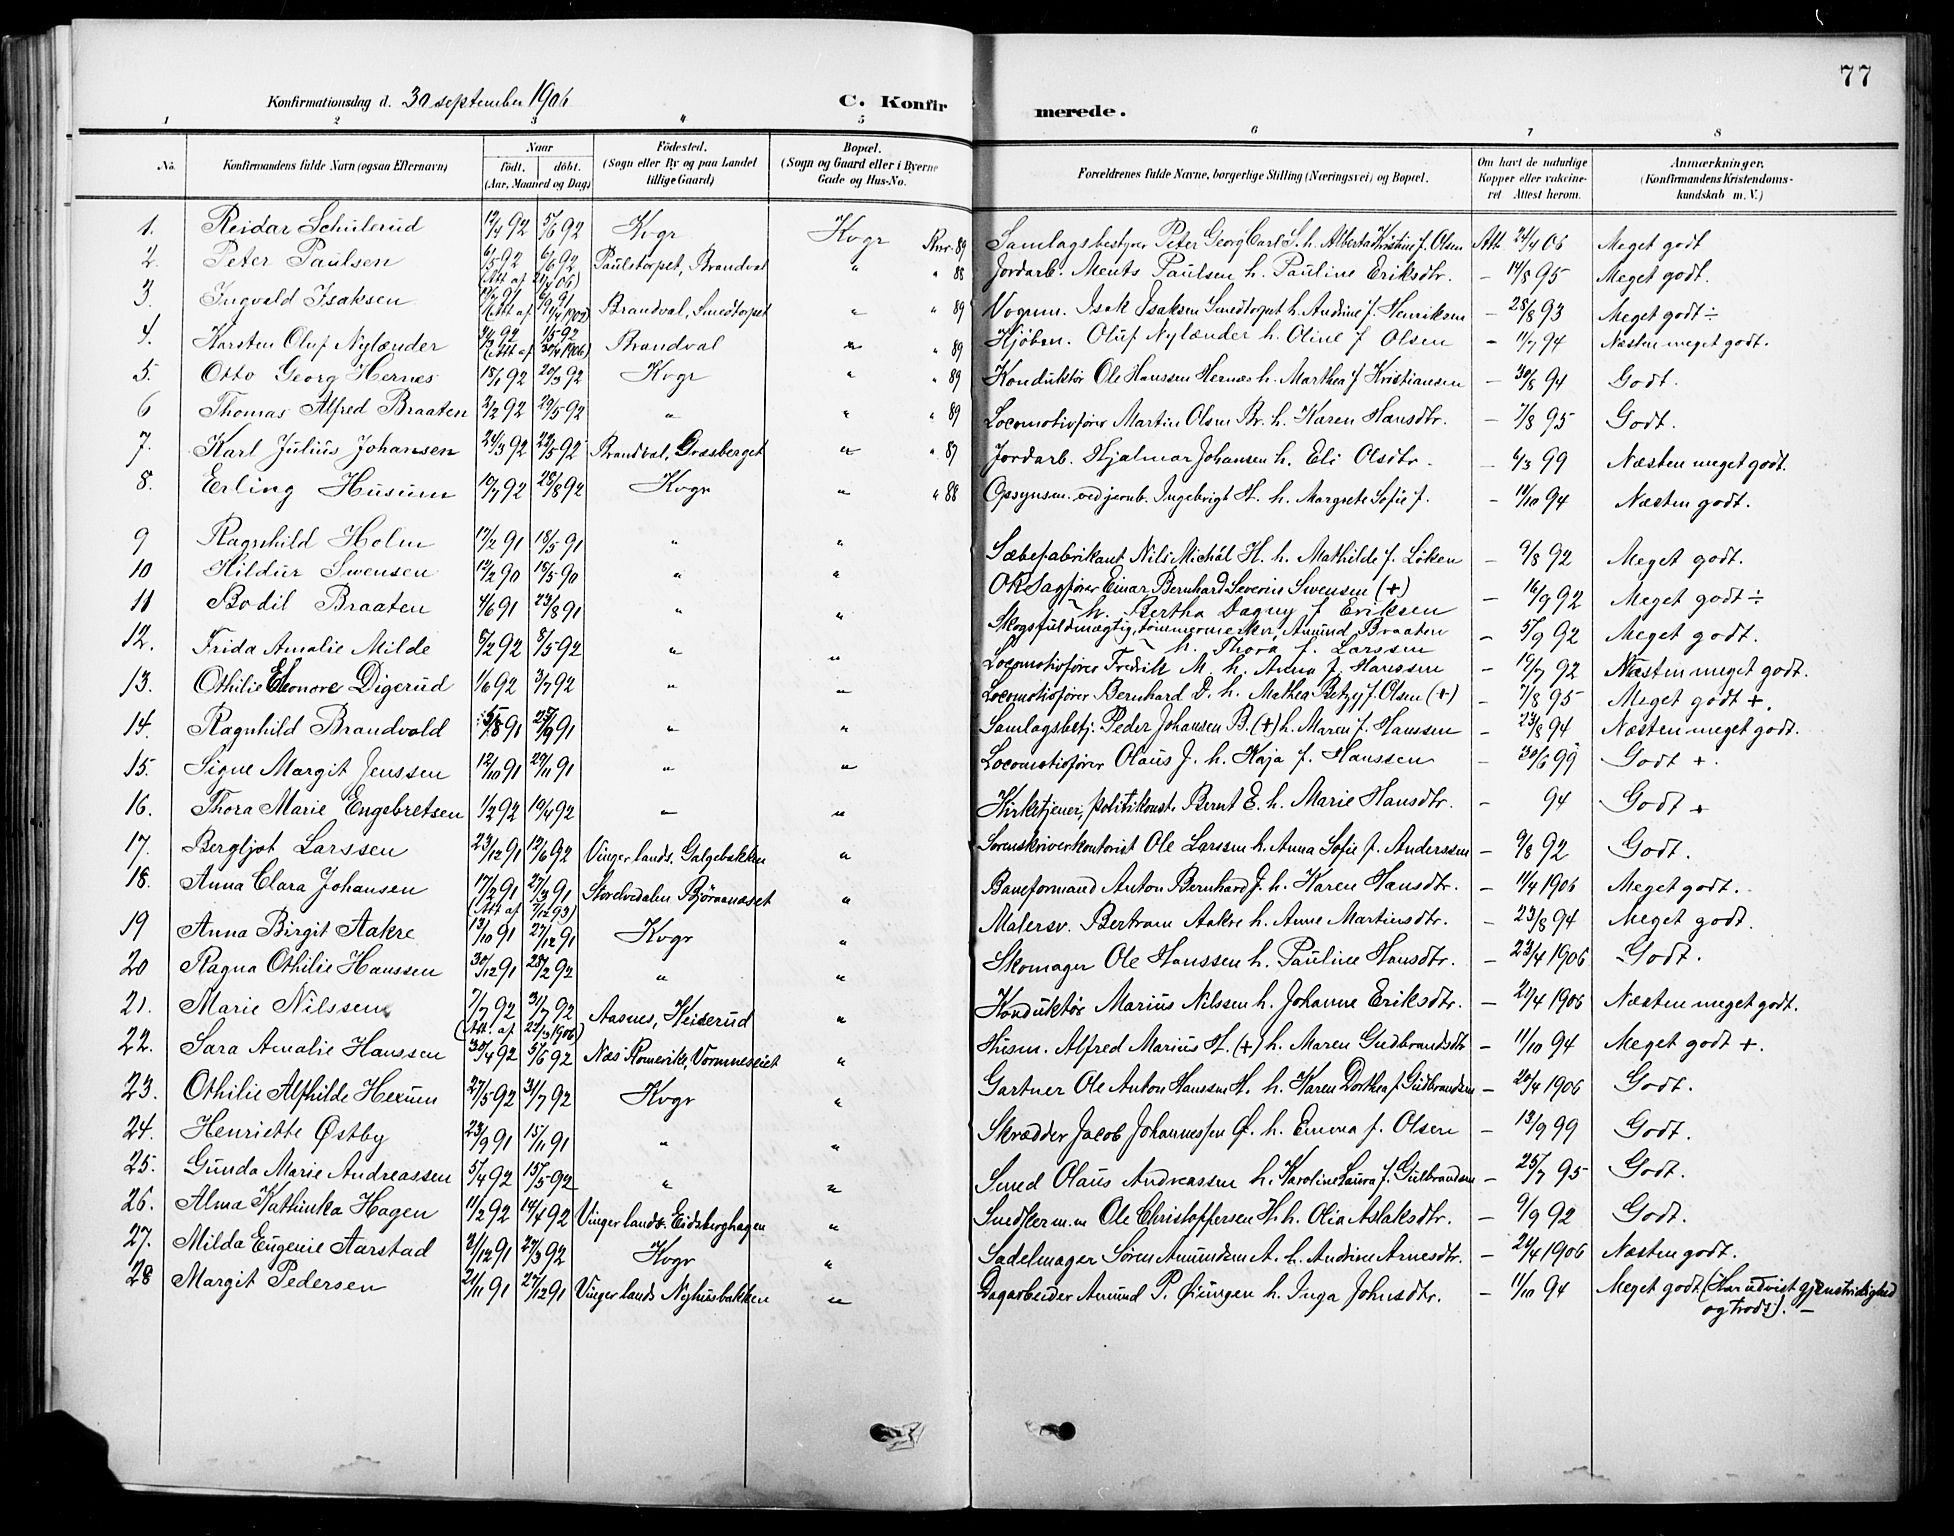 77
Konfirmationsdag d. 30 september 1906 C. Konfirmerede.
1 2 3 4 5 6 7 8
No. Konfirmandens fulde Navn (ogsaa Efternavn) Naar födt. döbt. (Aar, Maaned og Dag) Födested. (Sogn eller By og paa Landet tillige Gaard) Bopæl. (Sogn og Gaard eller i Byerne Gade og Hus-No. Forældrenes fulde Navne, borgerlige Stilling (Næringsvei) og Bopæl. Om havt de naturlige Kopper eller vakcineret Attest herom. Anmærkninger. (Konfirmandens Kristendomskundskab m. V.)
1. Reidar Schulerud 12/4 92 5/6 92 Kvgr Kvgr Rnr 89 Samlagsbestyrer Peter Georg Carl S. h. Alberta Kristine f. Olsen Att. 24/4 06 Meget godt
2. Peter Paulsen 6/5 92 6/6 92 Paulstorpet, Brandval " " 88 Jordarb. Ments Paulsen h. Pauline Eriksdtr. - 14/8 95 Meget godt.
3. Ingvald Isaksen Brandval, Smedtorpet " " 89 Vognm. Isak Isaksen Smedtorpet h. Andrine f. Henriksen - 28/8 93 Meget godt ÷
4. Karsten Oluf Nylænder (Att af 30/4 1906) Brandval " " 89 Kjöbm. Oluf Nylænder h. Oline f Olsen - 11/7 94 Næsten meget godt.
5. Otto Georg Hernes 18/1 92 20/3 92 Kvgr " " 89 Konduktör Ole Hanssen Hernæs h. Marthea f Kristiansen - 30/8 94 Godt.
6 Thomas Alfred Braaten 2/2 92 29/5 92 " " " 89 Locomotivförer Martin Olsen Br. h. Karen Hansdtr. - 7/8 95 Godt.
7. Karl Julius Johansen 24/3 92 22/5 92 Brandval, Græsberget " " 87 Jordarb. Hjalmar Johansen h. Eli Olsdtr. - 6/3 99 Næsten meget godt.
8. Erling Husum 10/7 92 28/8 92 Kvgr " " 88 Opsynsm. ved jernb. Ingebrigt H. h. Margrete Sofie f. - 11/10 94 Næsten godt.
9 Ragnhild Holm 17/2 91 18/5 91 " " Sæbefabrikant Nils Michāl H. h. Mathilde f. Löken - 9/8 92 Meget godt.
10 Hildur Swensen 12/2 90 18/5 90 " " ORSagförer Einar Bernhard Severin Swensen (+)
h. Bertha Dagny f Eriksen - 16/9 92 Meget godt ÷
11 Bodil Braaten 4/6 91 23/8 91 " " Skogsfuldmægtig, tömmermerker, Amund Braaten
h. Thora f. Larssen - 5/9 92 Meget godt.
12. Frida Amalie Milde 8/2 92 8/5 92 " " Locomotivförer Fredrik M. h. Anna f. Hanssen - 19/7 92 Næsten meget godt.
13. Othilie Elenore Digerud 1/6 92 3/7 92 " " Locomotivförer Bernhard D. h. Mathea Betzy f. Olsen (+) - 7/8 95 Meget godt +.
14. Ragnhild Brandvold " " Samlagsbestj. Peder Johansen B. (+) h. Maren f. Hanssen - 23/8 94 Næsten meget godt.
15. Signe Margit Jenssen 12/10 91 29/11 91 " " Locomotivförer Olaus J. h. Kaja f. Hanssen - 30/6 99 Godt +.
16. Thora Marie Engebretsen 1/2 92 19/4 92 " " Kirketjener, politikonst. Bernt E. h. Marie Hansdtr. - 94 Godt +
17. Bergljot Larssen 23/12 91 12/6 92 Vinger lands. Galgebakken " Sorenskriverkontorist Ole Larssen h. Anna Sofie f. Anderssen - 9/8 92 Godt.
18. Anna Clara Johansen 17/2 91 27/3 91 (Att af 7/12 93) Storelvedalen Björnanæset " Baneformand Anton Bernhard J. h. Karen Hansdtr. - 11/4 1906 Meget godt.
19 Anna Birgit Aakre 13/10 91 27/12 91 Kvgr " Malersv. Bertram Aakre h. Anne Martinsdtr. - 23/8 94 Meget godt.
20 Ragna Othilie Hanssen 30/12 91 28/2 92 " " Skomager Ole Hanssen h. Pauline Hansdtr. - 23/4 1906 Godt.
21. Marie Nilssen 7/7 92 31/7 92 (Att. af 1906) Aasnes, Heiserud " Konduktör Marius Nilssen h. Johanne Eriksdtr. - 27/4 1906 Næsten meget godt.
22. Sara Amalie Hanssen 30/4 92 5/6 92 Næs Romerike, Vormneseiet " Husm. Alfred Marius H. (+) h. Maren Gudbrandsdtr - 11/10 94 Meget godt +.
23. Othilie Alfhilde Hexum 27/5 92 31/7 92 Kvgr " Gartner Ole Anton Hanssen H. h. Karen Dorthea f Gudbrandsen - 20/4 1906 Godt.
24. Henriette Østby 23/9 91 15/11 91 " " Skrædder Jacob Johannessen Ø. h. Emma f. Olsen - 13/9 99 Godt.
25. Gunda Marie Andreassen 5/4 92 15/5 92 " " Smed Olaus Andreassen h. Karoline Laura f. Gulbrandsen - 25/7 95 Godt.
26. Alma Kathinka Hagen 11/2 92 14/4 92 Vinger lands. Eidsberghagen " Snedkerm.m Ole Christoffersen H. h. Olia Aslaksdtr. - 9/9 92 Godt.
27. Milda Eugenie Aarstad 2/12 91 27/3 92 Kvgr " Sadelmager Sören Amundsen A. h. Andrine Arnesdtr. - 24/4 1906 Næsten godt.
28 Margit Pedersen 21/11 91 27/12 91 Vinger lands Nyhusbakken " Dagarbeider Amund P. Öiungen h. Inga Johnsdtr. - 11/10 94 Meget godt (Har udvist gjenstridighed
og trods). -